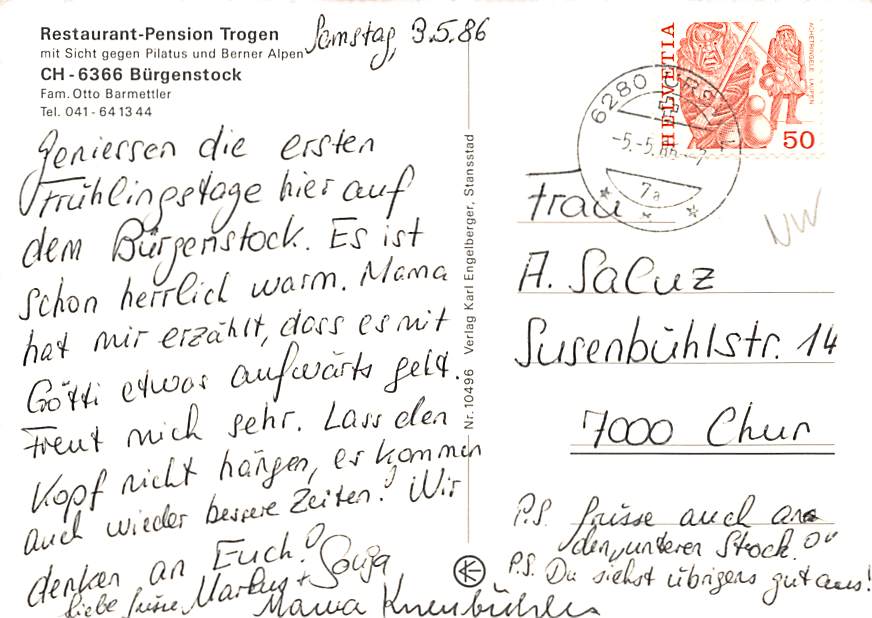 Restaurant-Pension Trogen
mit Sicht gegen Pilatus und Berner Alpen
CH-6366 Bürgenstock
Fam. Otto Barmettler
Tel. 041-64 13 44
Samstag, 3.5.86
Geniessen die ersten
Frühlingstage hier auf
dem Bürgenstock. Es ist
schon herrlich warm. Mama
hat mir erzählt, dass es mit
Götti etwas aufwärts geht.
Freut mich sehr. Lass den
Kopf nicht hängen, es kommen
auch wieder bessere Zeiten! Wir
denken an Euch!
Liebe Grüsse Markus + Sonja
Mama
Nr. 10496 Verlag Karl Engelberger, Stansstad
HELVETIA
ACHETRINGELE LAUPEN
50
6280
-5.-5.86.-7
7a
NW
Frau
A. Saluz
Susenbühlstr. 14
7000 Chur
P.S. Grüsse auch an
den unteren Stock.
P.S. Du siehst übrigens gut aus!
K